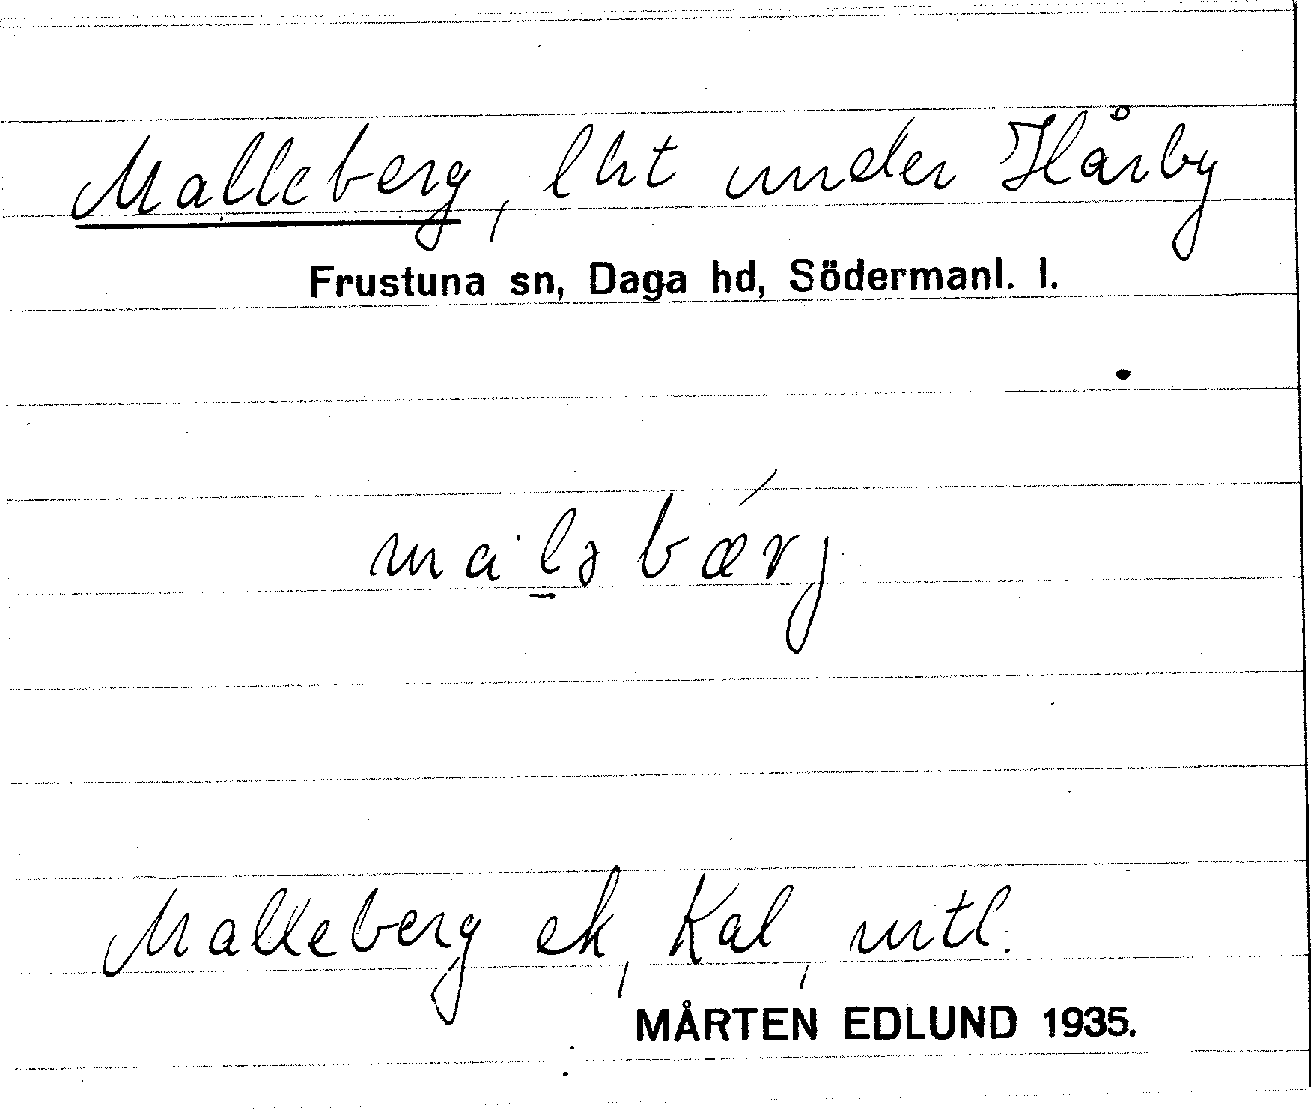 Malleberg, lht under Hårby
Frustuna sn, Daga hd, Södermanl. l.
Malleberg ek, Kal, mtl.
MÅRTEN EDLUND 1935.